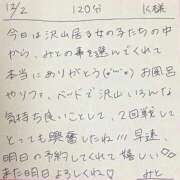 12/2 120分 K様
今日は沢山居る女の子たちの中
から、みとの事を選んでくれて
本当にありがとう(*´˘`*) お風呂
やソファ、ベードで沢山いろんな
気持ち良いことして、2回戦して
とっても興奮したね!!! 早速、
明日の予約してくれて嬉しい♡
また明日よろしくね♡ みと